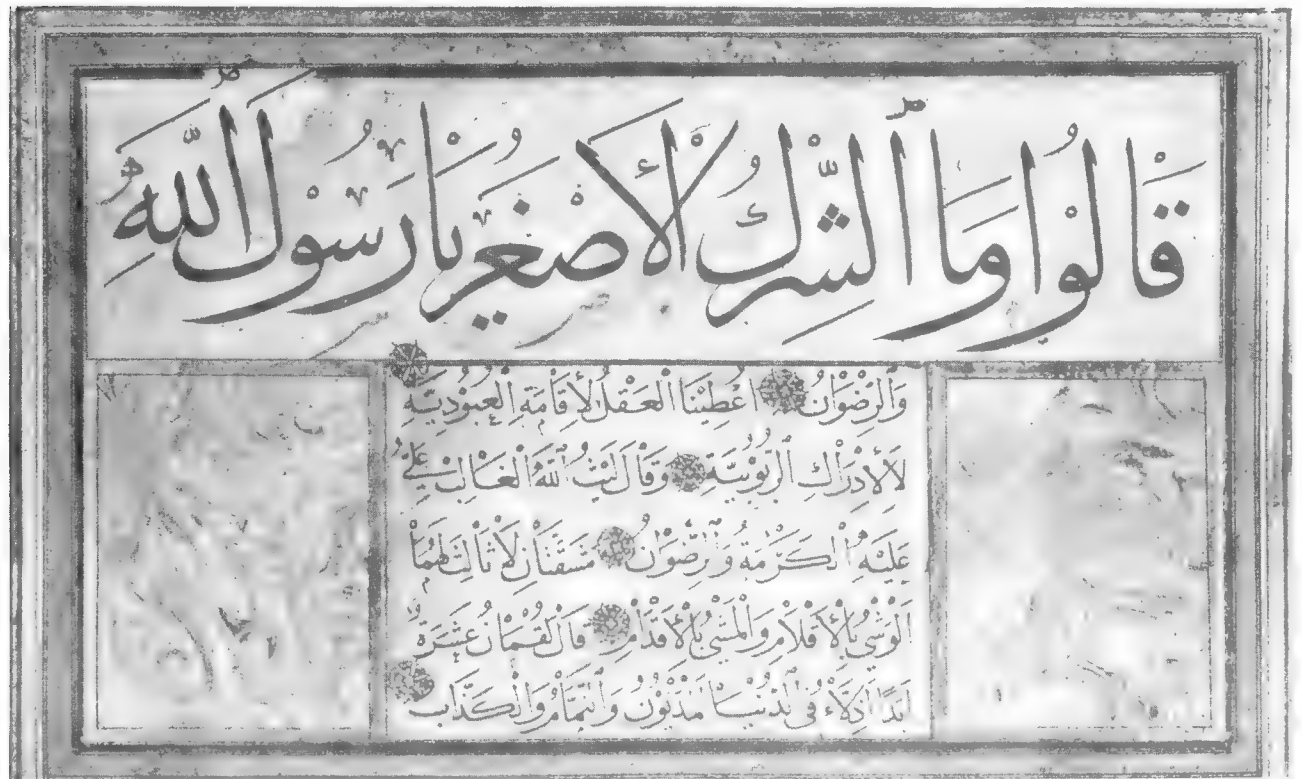 قَالُوا وَمَا ٱلشِّرْكُ ٱلْأَصْغَرُ يَا رَسُولَ ٱللَّهِ
وَٱلرِّضْوَانُ أُعْطِيْنَا ٱلْعَقْلَ لِأِقَامَةِ ٱلْعُبُوْدِيَّةِ
لَا لِأِدْرَاكِ ٱلرُّبُوْبِيَّةِ وَقَالَ لَيْثُ ٱللَّهِ ٱلْغَالِبُ عَلِيٌّ
عَلَيْهِ ٱلْكَرَّمَةُ وَٱلرِّضْوَانُ مَشَقَّتَانِ لَا ثَالِثَ لَهُمَا
ٱلْوَشْيُ بِٱلْأَقْلَامِ وَٱلْمَشْيُ بِٱلْأَقْدَامِ قَالَ لُقْمَانُ عَشَرَةٌ
أَبَدًا أَذِلَّاءُ فِي ٱلدُّنْيَا مَدْيُوْنٌ وَٱلنَّمَّامُ وَٱلْكَذَّابُ